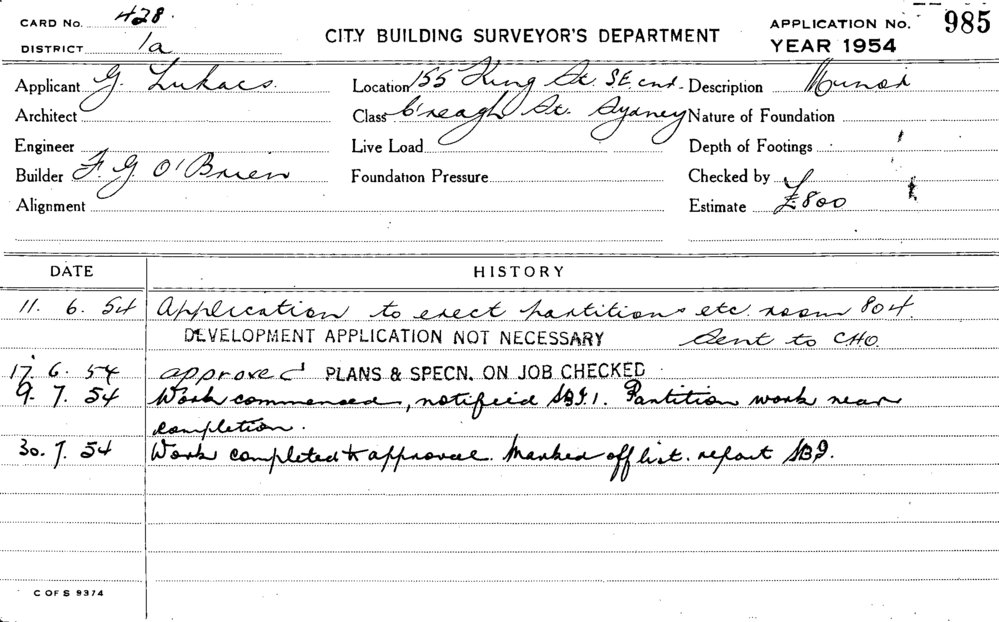 CARD No. 428.
DISTRICT 1a
CITY BUILDING SURVEYOR'S DEPARTMENT
APPLICATION No. 985
YEAR 1954
Applicant G. Lukacs.
Location 155 King St. S.E. cnr.
Description Minor
Architect
Class C'reagh St. Sydney
Nature of Foundation
Engineer
Live Load
Depth of Footings
Builder F. G. O'Brien
Foundation Pressure
Checked by
Alignment
Estimate £800
DATE HISTORY
11. 6. 54 Application to erect partitions etc. room 804.
DEVELOPMENT APPLICATION NOT NECESSARY Sent to CHO.
17. 6. 54 approved PLANS & SPECN. ON JOB CHECKED
9. 7. 54 Work commenced, notified SBI.1. Partition work near
completion.
30. 7. 54 Work completed to approval. Marked off list. report SBI.
C OF S 9374